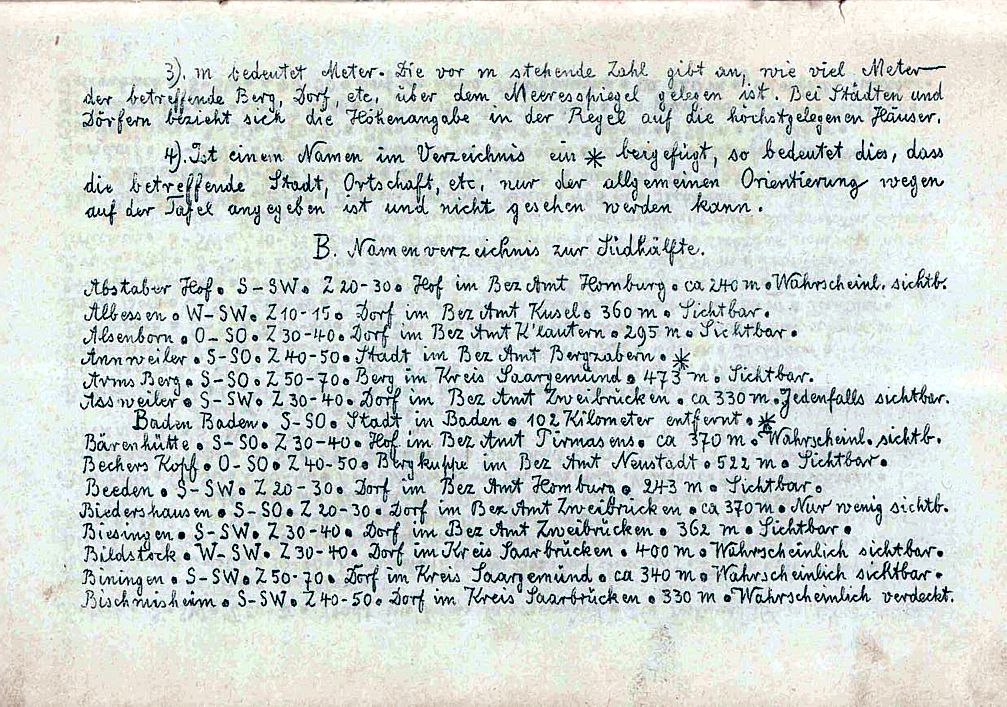 3). m bedeutet Meter. Die vor m stehende Zahl gibt an, wie viel Meter
der betreffende Berg, Dorf, etc. über dem Meeresspiegel gelegen ist. Bei Städten und
Dörfern bezieht sich die Höhenangabe in der Regel auf die höchstgelegenen Häuser.
4). Ist einem Namen im Verzeichnis ein * beigefügt, so bedeutet dies, dass
die betreffende Stadt, Ortschaft, etc. nur der allgemeinen Orientierung wegen
auf der Tafel angegeben ist und nicht gesehen werden kann.
B. Namenverzeichnis zur Südhälfte.
Abstaber Hof. S-SW. Z 20-30. Hof im Bez Amt Homburg. ca 240 m. Wahrscheinl. sichtb.
Albessen. W-SW. Z 10-15. Dorf im Bez Amt Kusel. 360 m. Sichtbar.
Alsenborn. O-SO. Z 30-40. Dorf im Bez Amt K'lautern. 295 m. Sichtbar.
Annweiler. S-SO. Z 40-50. Stadt im Bez Amt Bergzabern. *
Arms Berg. S-SO. Z 50-70. Berg im Kreis Saargemünd. 473 m. Sichtbar.
Assweiler. S-SW. Z 30-40. Dorf im Bez Amt Zweibrücken. ca 330 m. Jedenfalls sichtbar.
Baden Baden. S-SO. Stadt in Baden. 102 Kilometer entfernt. *
Bärenhütte. S-SO. Z 30-40. Hof im Bez Amt Pirmasens. ca 370 m. Wahrscheinl. sichtb.
Bechers Kopf. O-SO. Z 40-50. Bergkuppe im Bez Amt Neustadt. 522 m. Sichtbar.
Beeden. S-SW. Z 20-30. Dorf im Bez Amt Homburg. 243 m. Sichtbar.
Biedershausen. S-SO. Z 20-30. Dorf im Bez Amt Zweibrücken. ca 370 m. Nur wenig sichtb.
Biesingen. S-SW. Z 30-40. Dorf im Bez Amt Zweibrücken. 362 m. Sichtbar.
Bildstock. W-SW. Z 30-40. Dorf im Kreis Saarbrücken. 400 m. Wahrscheinlich sichtbar.
Biningen. S-SW. Z 50-70. Dorf im Kreis Saargemünd. ca 340 m. Wahrscheinlich sichtbar.
Bischmisheim. S-SW. Z 40-50. Dorf im Kreis Saarbrücken. 330 m. Wahrscheinlich verdeckt.